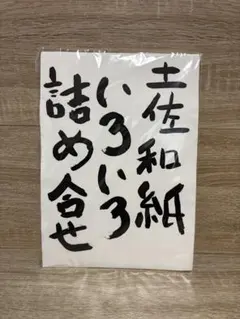 土佐和紙
いろいろ
詰め合せ